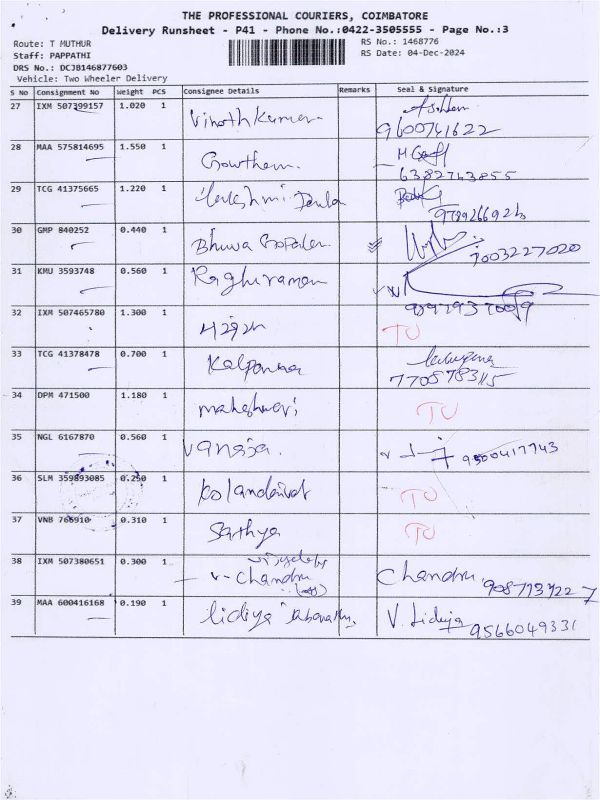 THE PROFESSIONAL COURIERS, COIMBATORE
Delivery Runsheet - P41 - Phone No.:0422-3505555 - Page No.:3
Route: T MUTHUR
RS No.: 1468776
Staff: PAPPATHI
RS Date: 04-Dec-2024
DRS No.: DCJB146877603
Vehicle: Two Wheeler Delivery
S No Consignment No Weight PCS Consignee Details Remarks Seal & Signature
27 IXM 507399157 1.020 1 Vinothkumar
9600741622
28 MAA 575814695 1.550 1 Gowtham.
6382743855
29 TCG 41375665 1.220 1
30 GMP 840252 0.440 1 Bhuva
7003227020
31 KMU 3593748 0.560 1 Raghuraman
32 IXM 507465780 1.300 1
33 TCG 41378478 0.700 1 Kalpanna
34 DPM 471500 1.180 1 maheshwari
35 NGL 6167870 0.560 1 vanaja.
9500417743
36 SLM 359893085 0.250 1
37 VNB 766910 0.310 1 Sathya
38 IXM 507380651 0.300 1 Chandru Chandru
39 MAA 600416168 0.190 1 lidiya V. Lidiya
9566049331